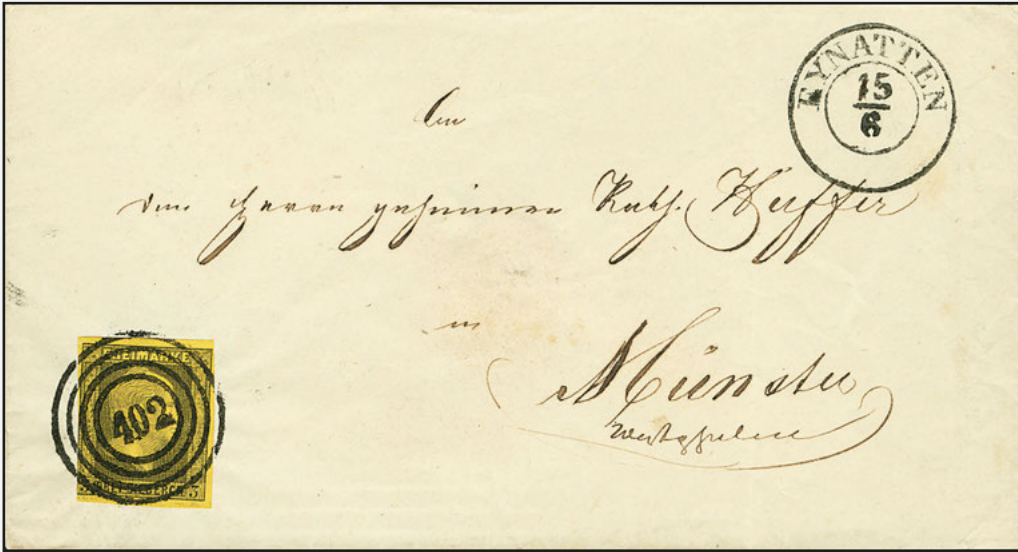 EYNATTEN
15
6
An
den Herrn geheimen Rath. Hüffer
in
Münster
Westphalen
FREIMARKE
402
3 SILBERGR. 3